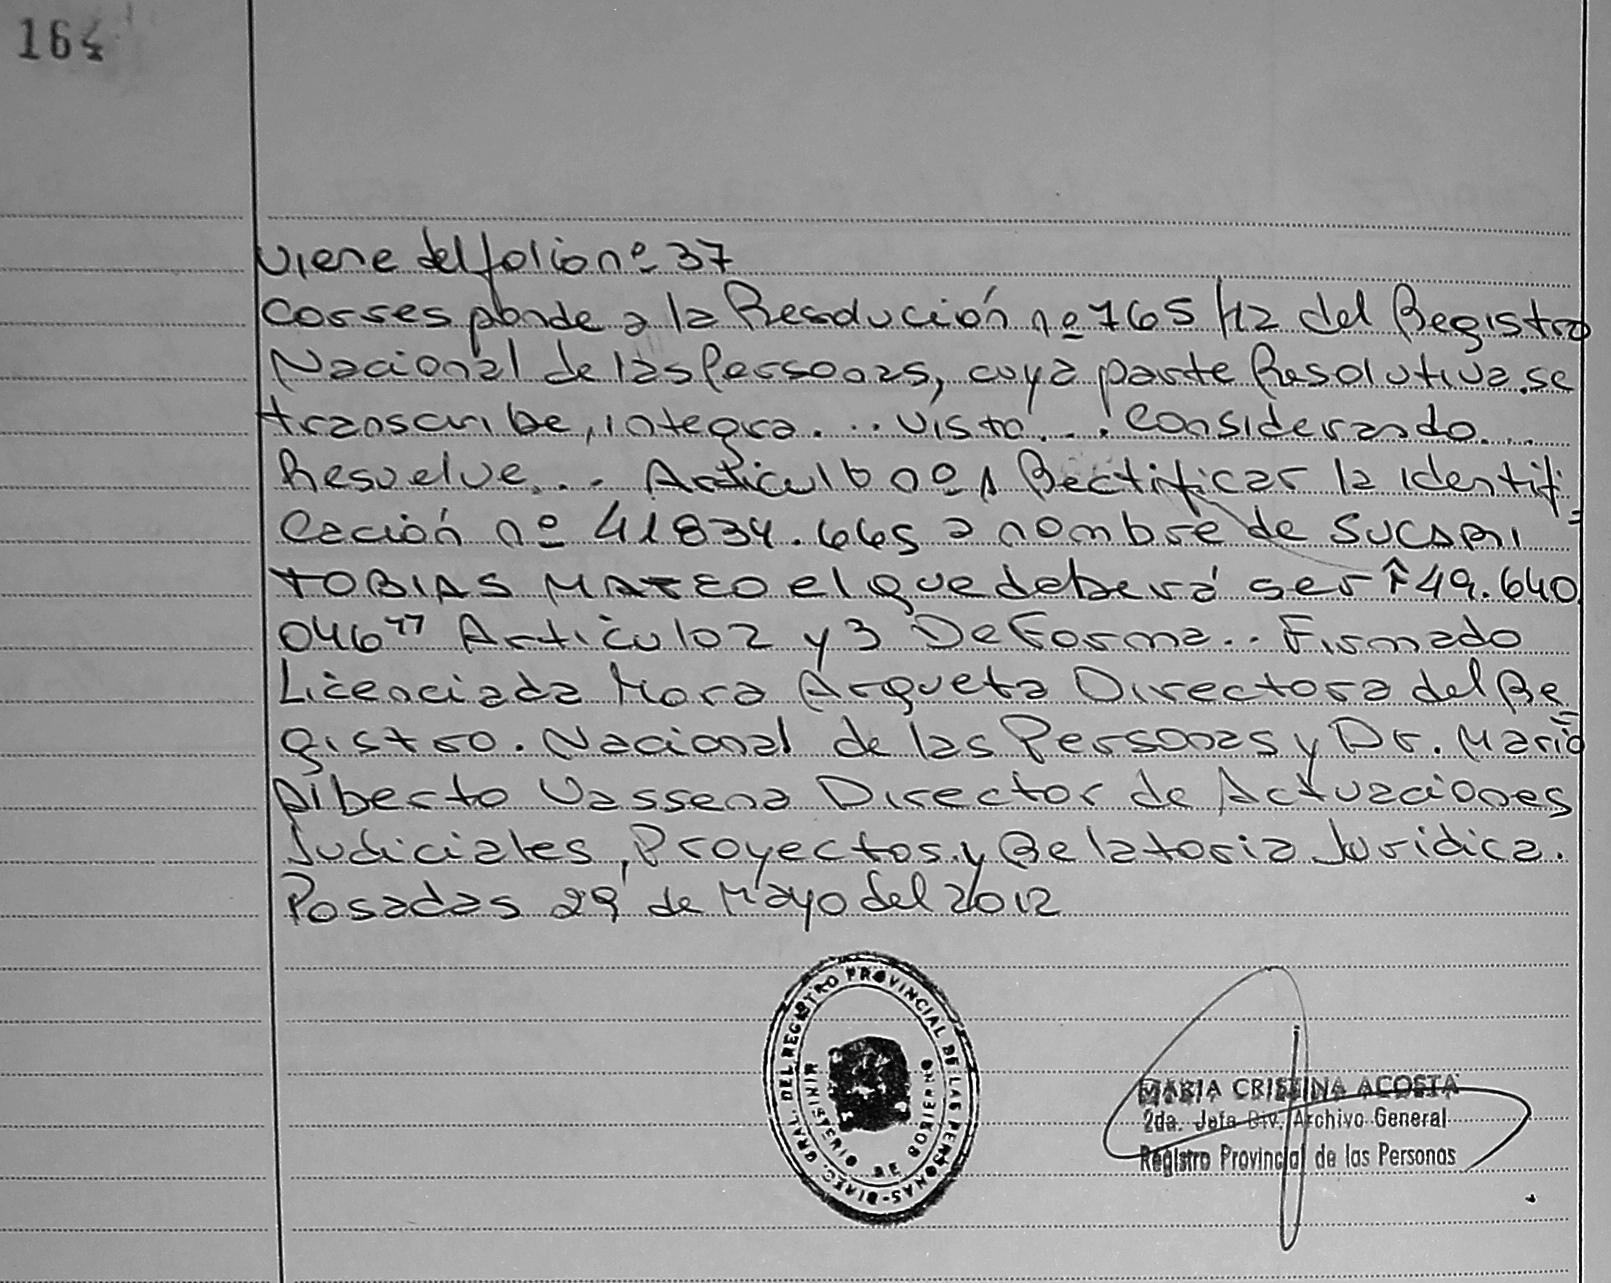 164
Viene del folio nº 37
Corresponde a la Resolución nº 765/12 del Registro
Nacional de las Personas, cuya parte Resolutiva se
transcribe, integra... visto... Considerando...
Resuelve... Articulo nº 1 Rectificar la identifi
cación nº 41834.665 a nombre de SUCARI
TOBIAS MATEO el que deberá ser "49.640
046" Artículo 2 y 3 De Forma.. Firmado
Licenciada Mora Arqueta Directora del Re
gistro. Nacional de las Personas y Dr. Mario
Alberto Vassena Director de Actuaciones
Judiciales, Proyectos y Relatoria Juridica.
Posadas 29 de Mayo del 2012
DIREC. GRAL. DEL REGISTRO PROVINCIAL DE LAS PERSONAS-
MINISTERIO DE GOBIERNO
MARIA CRISTINA ACOSTA
2da. Jefa Div. Archivo General
Registro Provincial de las Personas